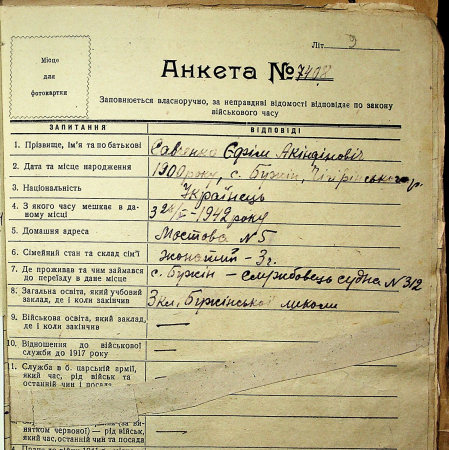 Літ 9
Місце
для
фотокартки
Анкета № 7408
Заповнюється власноручно, за неправдиві відомості відповідає по закону
військового часу
ЗАПИТАННЯ
ВІДПОВІДІ
1. Прізвище, ім'я та по батькові
Савченко Єфім Акіндінович
2. Дата та місце народження
1900 року, с. Бужін, Чигирінського р.
3. Національність
Українець
4. З якого часу мешкає в да-
ному місці
1942 року
5. Домашня адреса
Мостова № 5
6. Сімейний стан та склад сім'ї
жонатий - 3 ч.
7. Де проживав та чим займався
до переїзду в дане місце
с. Бужін – службовець судна № 312
8. Загальна освіта, який учбовий
заклад, де і коли закінчив
3 кл. Бужінської школи
9. Військова освіта, який заклад,
де і коли закінчив
—
10. Відношення до військової
служби до 1917 року
—
11. Служба в б. царській армії,
який час, рід військ та
останній чин і посада
(за ви-
нятком червоної) — рід військ,
який час, останній чин та посада